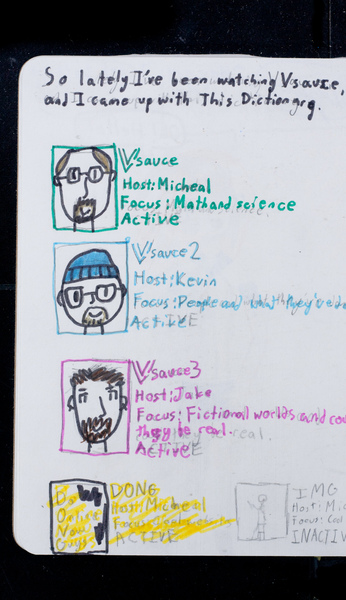 So lately I've been watching Vsauce,
and I came up with This Dictiongrg.
Vsauce
Host: Micheal
Focus: Math and science
Active
Vsauce2
Host: Kevin
Focus: People and what they've
Active
Vsauce3
Host: Jake
Focus: Fictional worlds and
they be real.
Active
Do
Online
Now
Guys
DONG
Host: Micheal
Focus:
ACTIVE
IMG
Host: Mic
Focus: Cool
INACTIV